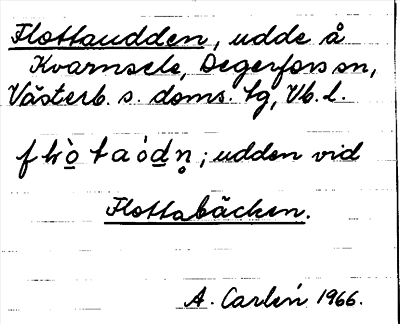 Flottaudden, udde å
Kvarnsele, Degerfors sn,
Västerb. s. doms. tg, Vb. l.
; udden vid
Flottabäcken.
A. Carlén 1966.